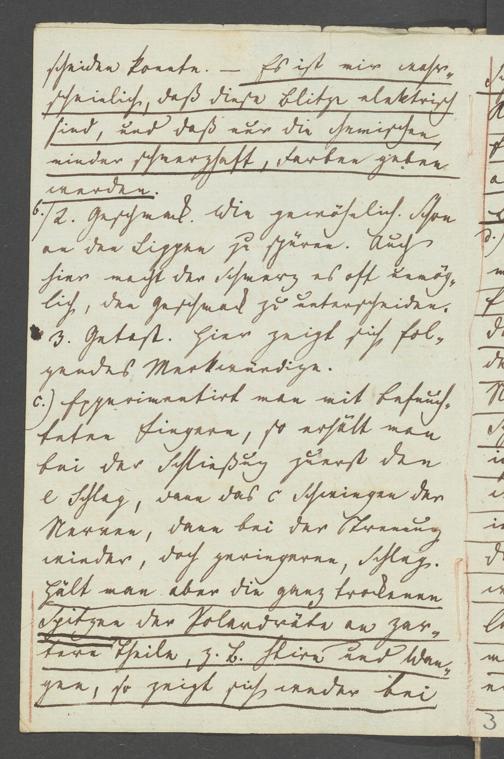 scheiden konnte. — Es ist mir wahr-
scheinlich, daß diese Blitze elektrisch
sind, und daß nur die chemischen,
minder schmerzhaft, Farben geben
werden.
b.) 2. Geschmack. Wie gewöhnlich. Schon
an den Lippen zu spüren. Auch
hier macht der Schmerz es oft unmög-
lich, den Geschmack zu unterscheiden.
3. Getast. Hier zeigt sich fol-
gendes Merkwürdige.
c.) Experimentirt man mit befeuch-
teten Fingern, so erhält man
bei der Schließung zuerst den
e Schlag, dann das c Schwingen der
Nerven, dann bei der Trennung
wieder, doch geringeren, Schlag.
Hält man aber die ganz trockenen
Spitzen der Polardräte an zar-
tere Theile, z. B. Stirn und Wan-
gen, so zeigt sich weder bei
3